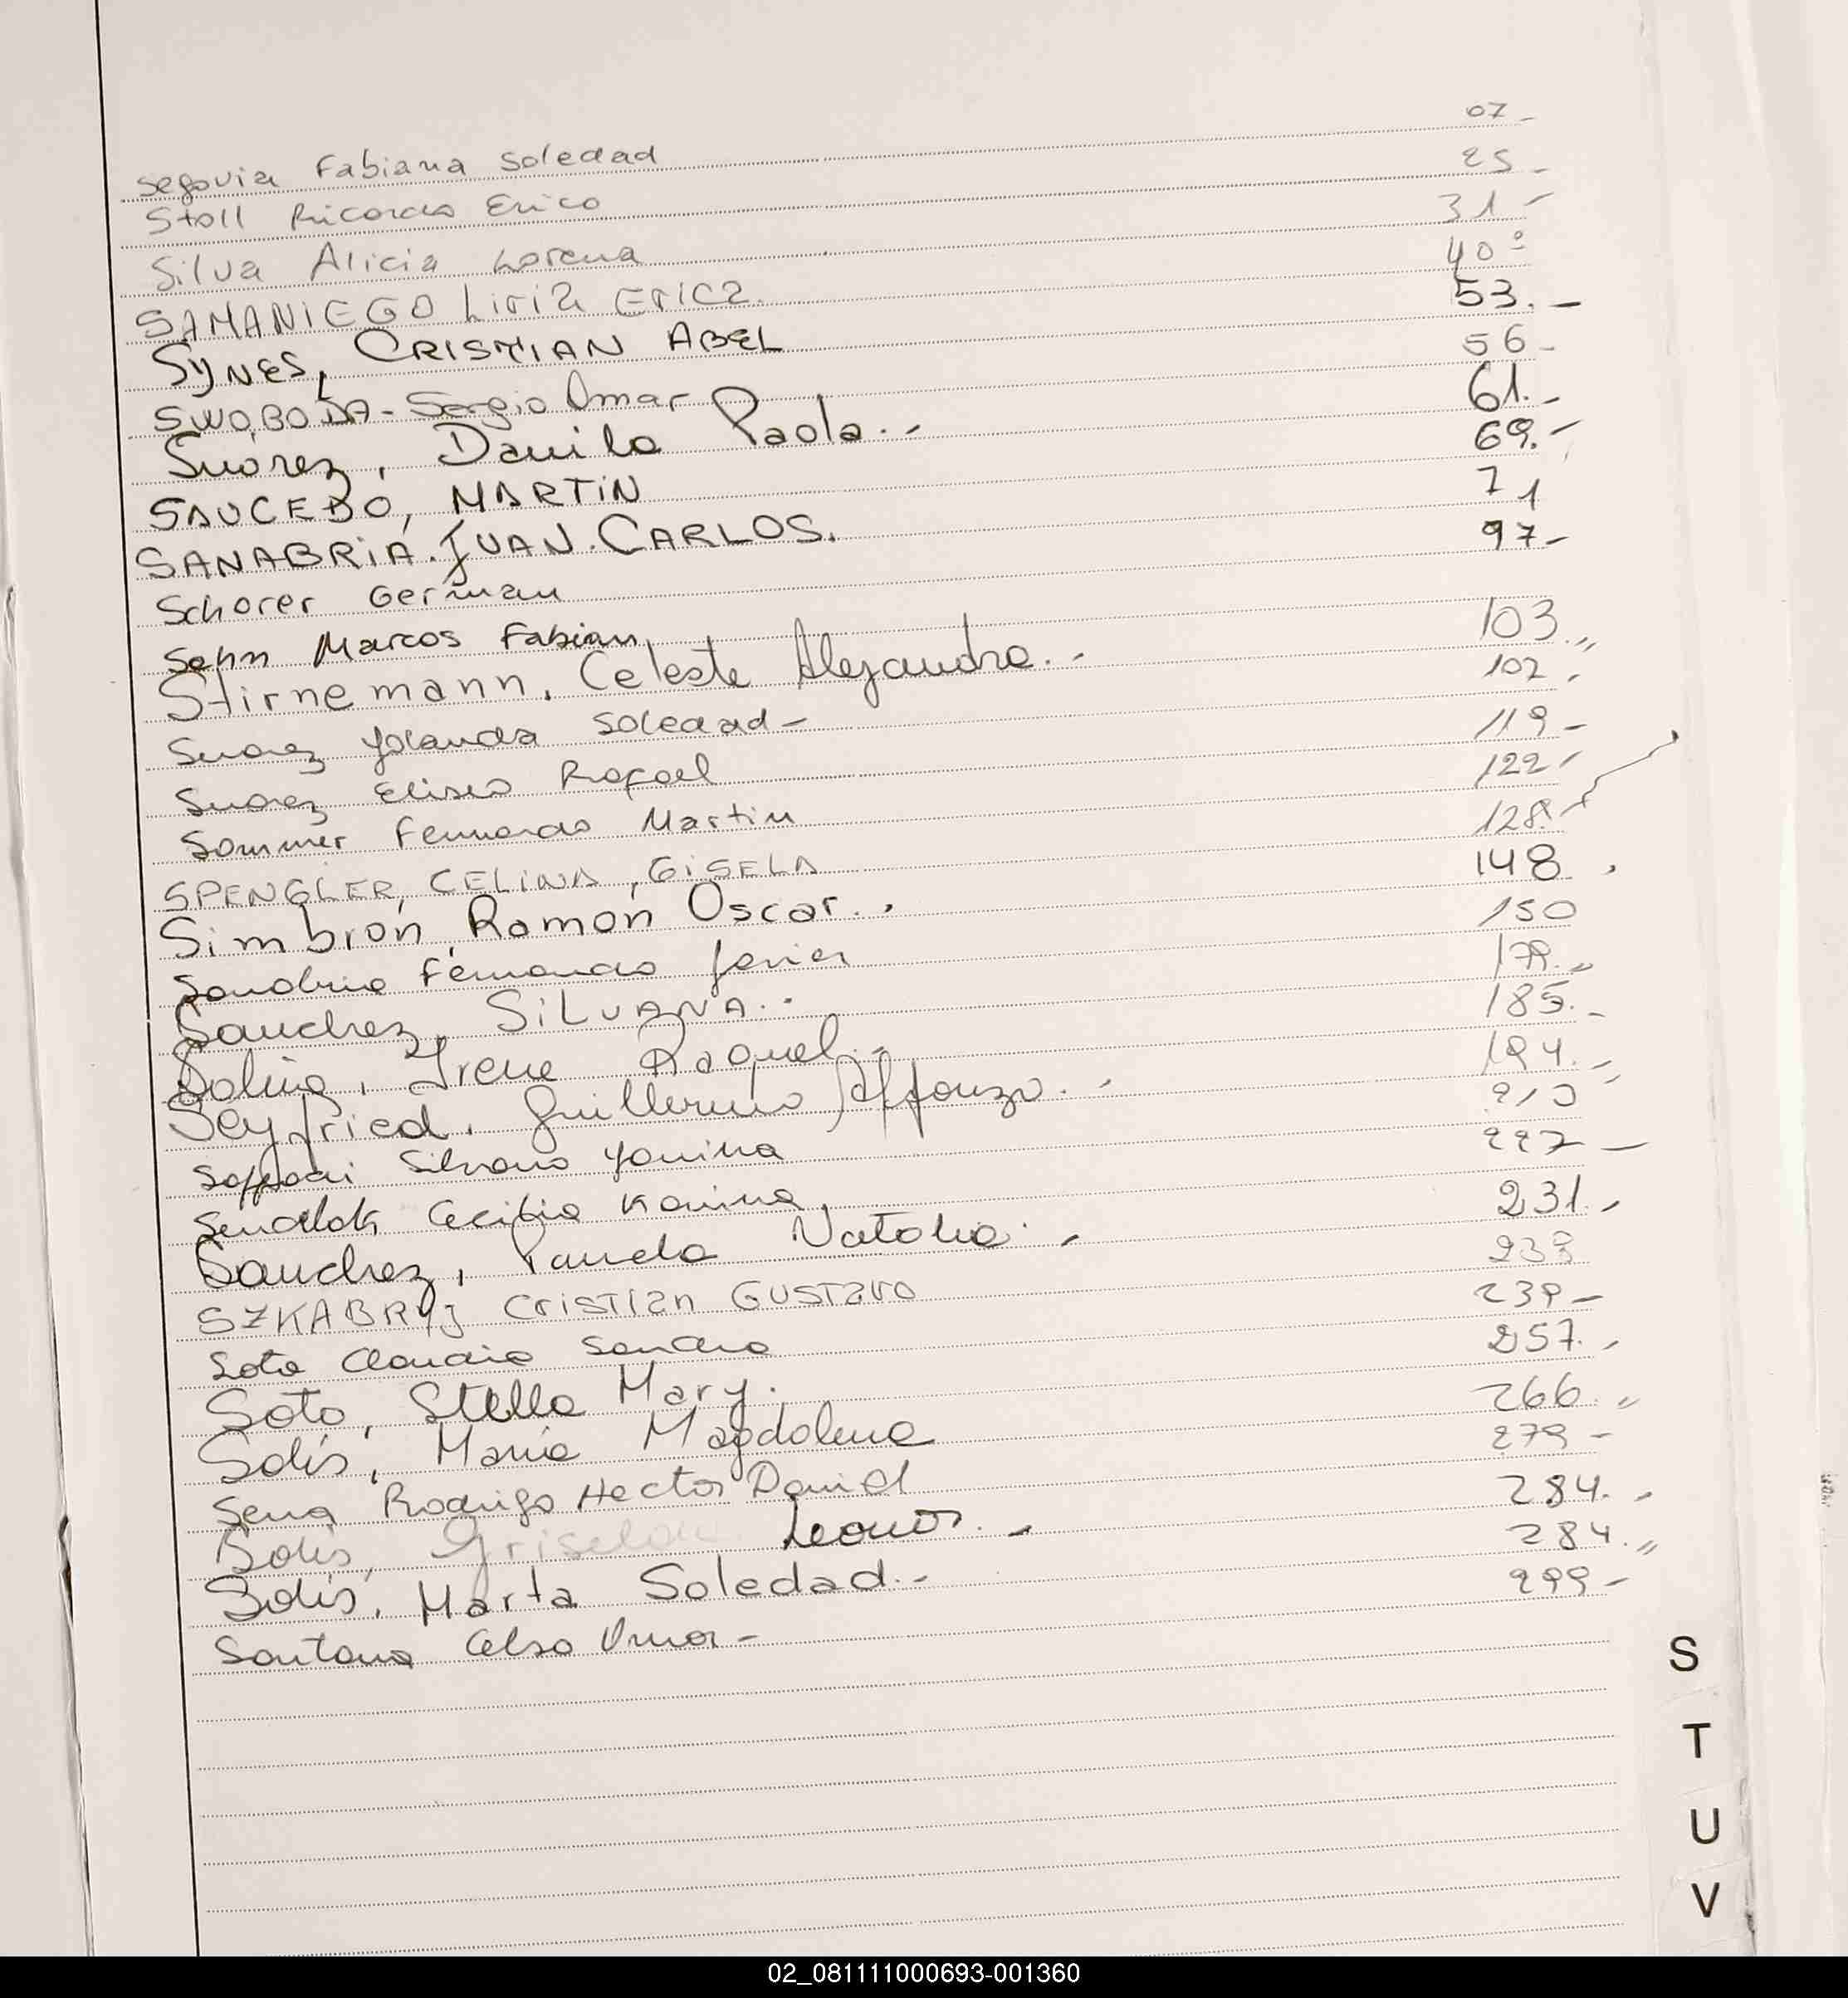 Segovia Fabiana Soledad 07-
Stoll Ricardo Erico 25-
Silva Alicia Lorena 31-
SAMANIEGO Liria Erica. 40-
SYNES, CRISTIAN ABEL 53.-
SWOBODA - Sergio Omar 56-
Suarez, Danila Paola.- 61.-
SAUCEDO, MARTIN 69.-
SANABRIA. JUAN. CARLOS. 71
Schorer German 97-
Sehn Marcos Fabian
Stirnemann, Celeste Alejandra.- 103.,,
Suarez Yolanda Soledad- 102.
Suarez Eliseo Rafael 119-
Sommer Fernando Martin 122-
SPENGLER, CELINA, GISELA 128.-
Simbrón, Ramón Oscar.. 148.
Sanabria Fernando Javier 150
Sanchez, SILVANA.. 178.,,
Irene Raquel.- 185.-
Seyfried, Guillermo Alfonzo.- 194.-
Silvana Yanina 210
Cecilia Karina 227-
Sanchez, Pamela Natalia.- 231.-
SZKABRYJ Cristian GUSTAVO 233
Soto Claudio Sandro 239-
Soto, Stella Mary. 257.-
Solís, María Magdalena 266.,,
Sena Rodrigo Hector Daniel 279-
Solís, Griselda Leonor.- 284.-
Solís, Marta Soledad.- 284.,,
Santana Celso Omar- 299-
S
T
U
V
02_081111000693-001360